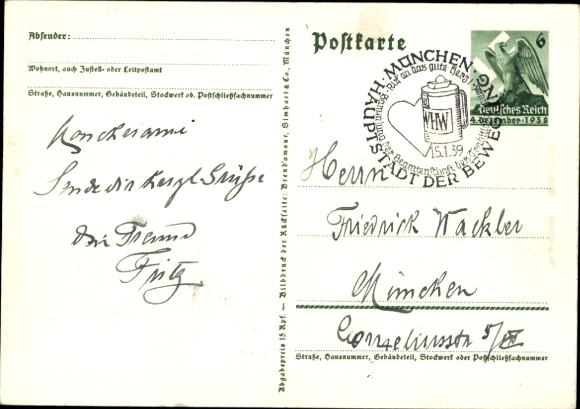 Absender:
Wohnort, auch Zustell- oder Leitpostamt
Straße, Hausnummer, Gebäudeteil, Stockwerk od. Postschließfachnummer
Sende dir herzl Grüße
Dein Freund
Fritz
Abgabepreis 15 Rpf. — Bilddruck der Rückseite: Brend'amour, Simhart & Co., München
Postkarte
MÜNCHEN
HAUPTSTADT DER BEWEGUNG
WHW
15.1.39
6
Deutsches Reich
4. Dezember · 1938
Herrn
Friedrick Wackler
München
Corneliusstr 5/
Straße, Hausnummer, Gebäudeteil, Stockwerk oder Postschließfachnummer